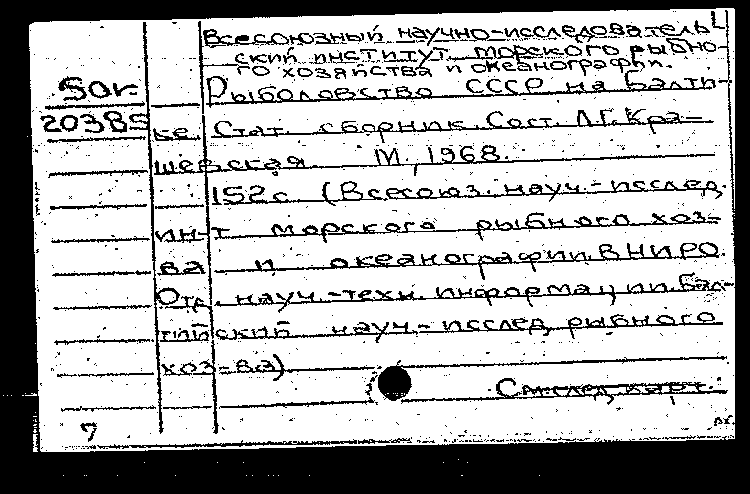 Всесоюзный научно-исследователь
ский институт морского рыбно-
го хозяйства и океанографии.
Sor.
Рыболовство СССР на Балти-
20385
ке. Стат. сборник. Сост. Л.Г. Кра-
шевская М., 1968.
152с. (Всесоюз. науч.-исслед.
ин-т морского рыбного хоз-
ва и океанографии. ВНИРО.
Отд. науч.-техн. информации. Бал-
тийский науч.-исслед. рыбного
хоз-ва)
См. след. карт.
7